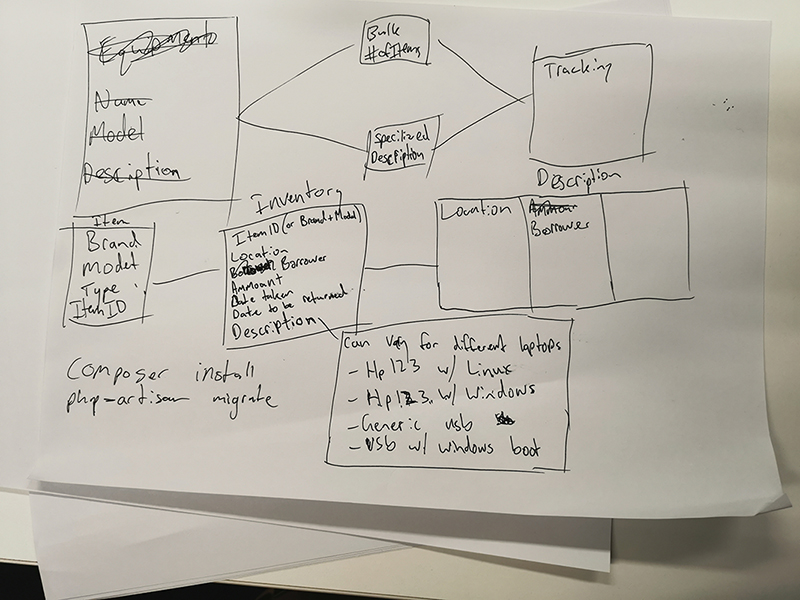 Equipments
Name
Model
Description
Bulk
# of Items
Specilized
Description
Tracking
Item
Brand
Model
Type
Item ID
Inventory
Item ID (or Brand + Model)
Location
Barrower
Ammount
Date taken
Date to be returned
Description
Description
Location
Ammoun
Borrower
Can vary for different laptops
- Hp 123 w/ Linux
- Hp 123. w/ Windows
- Generic usb
- Usb w/ windows boot
Composer install
php-artisan migrate